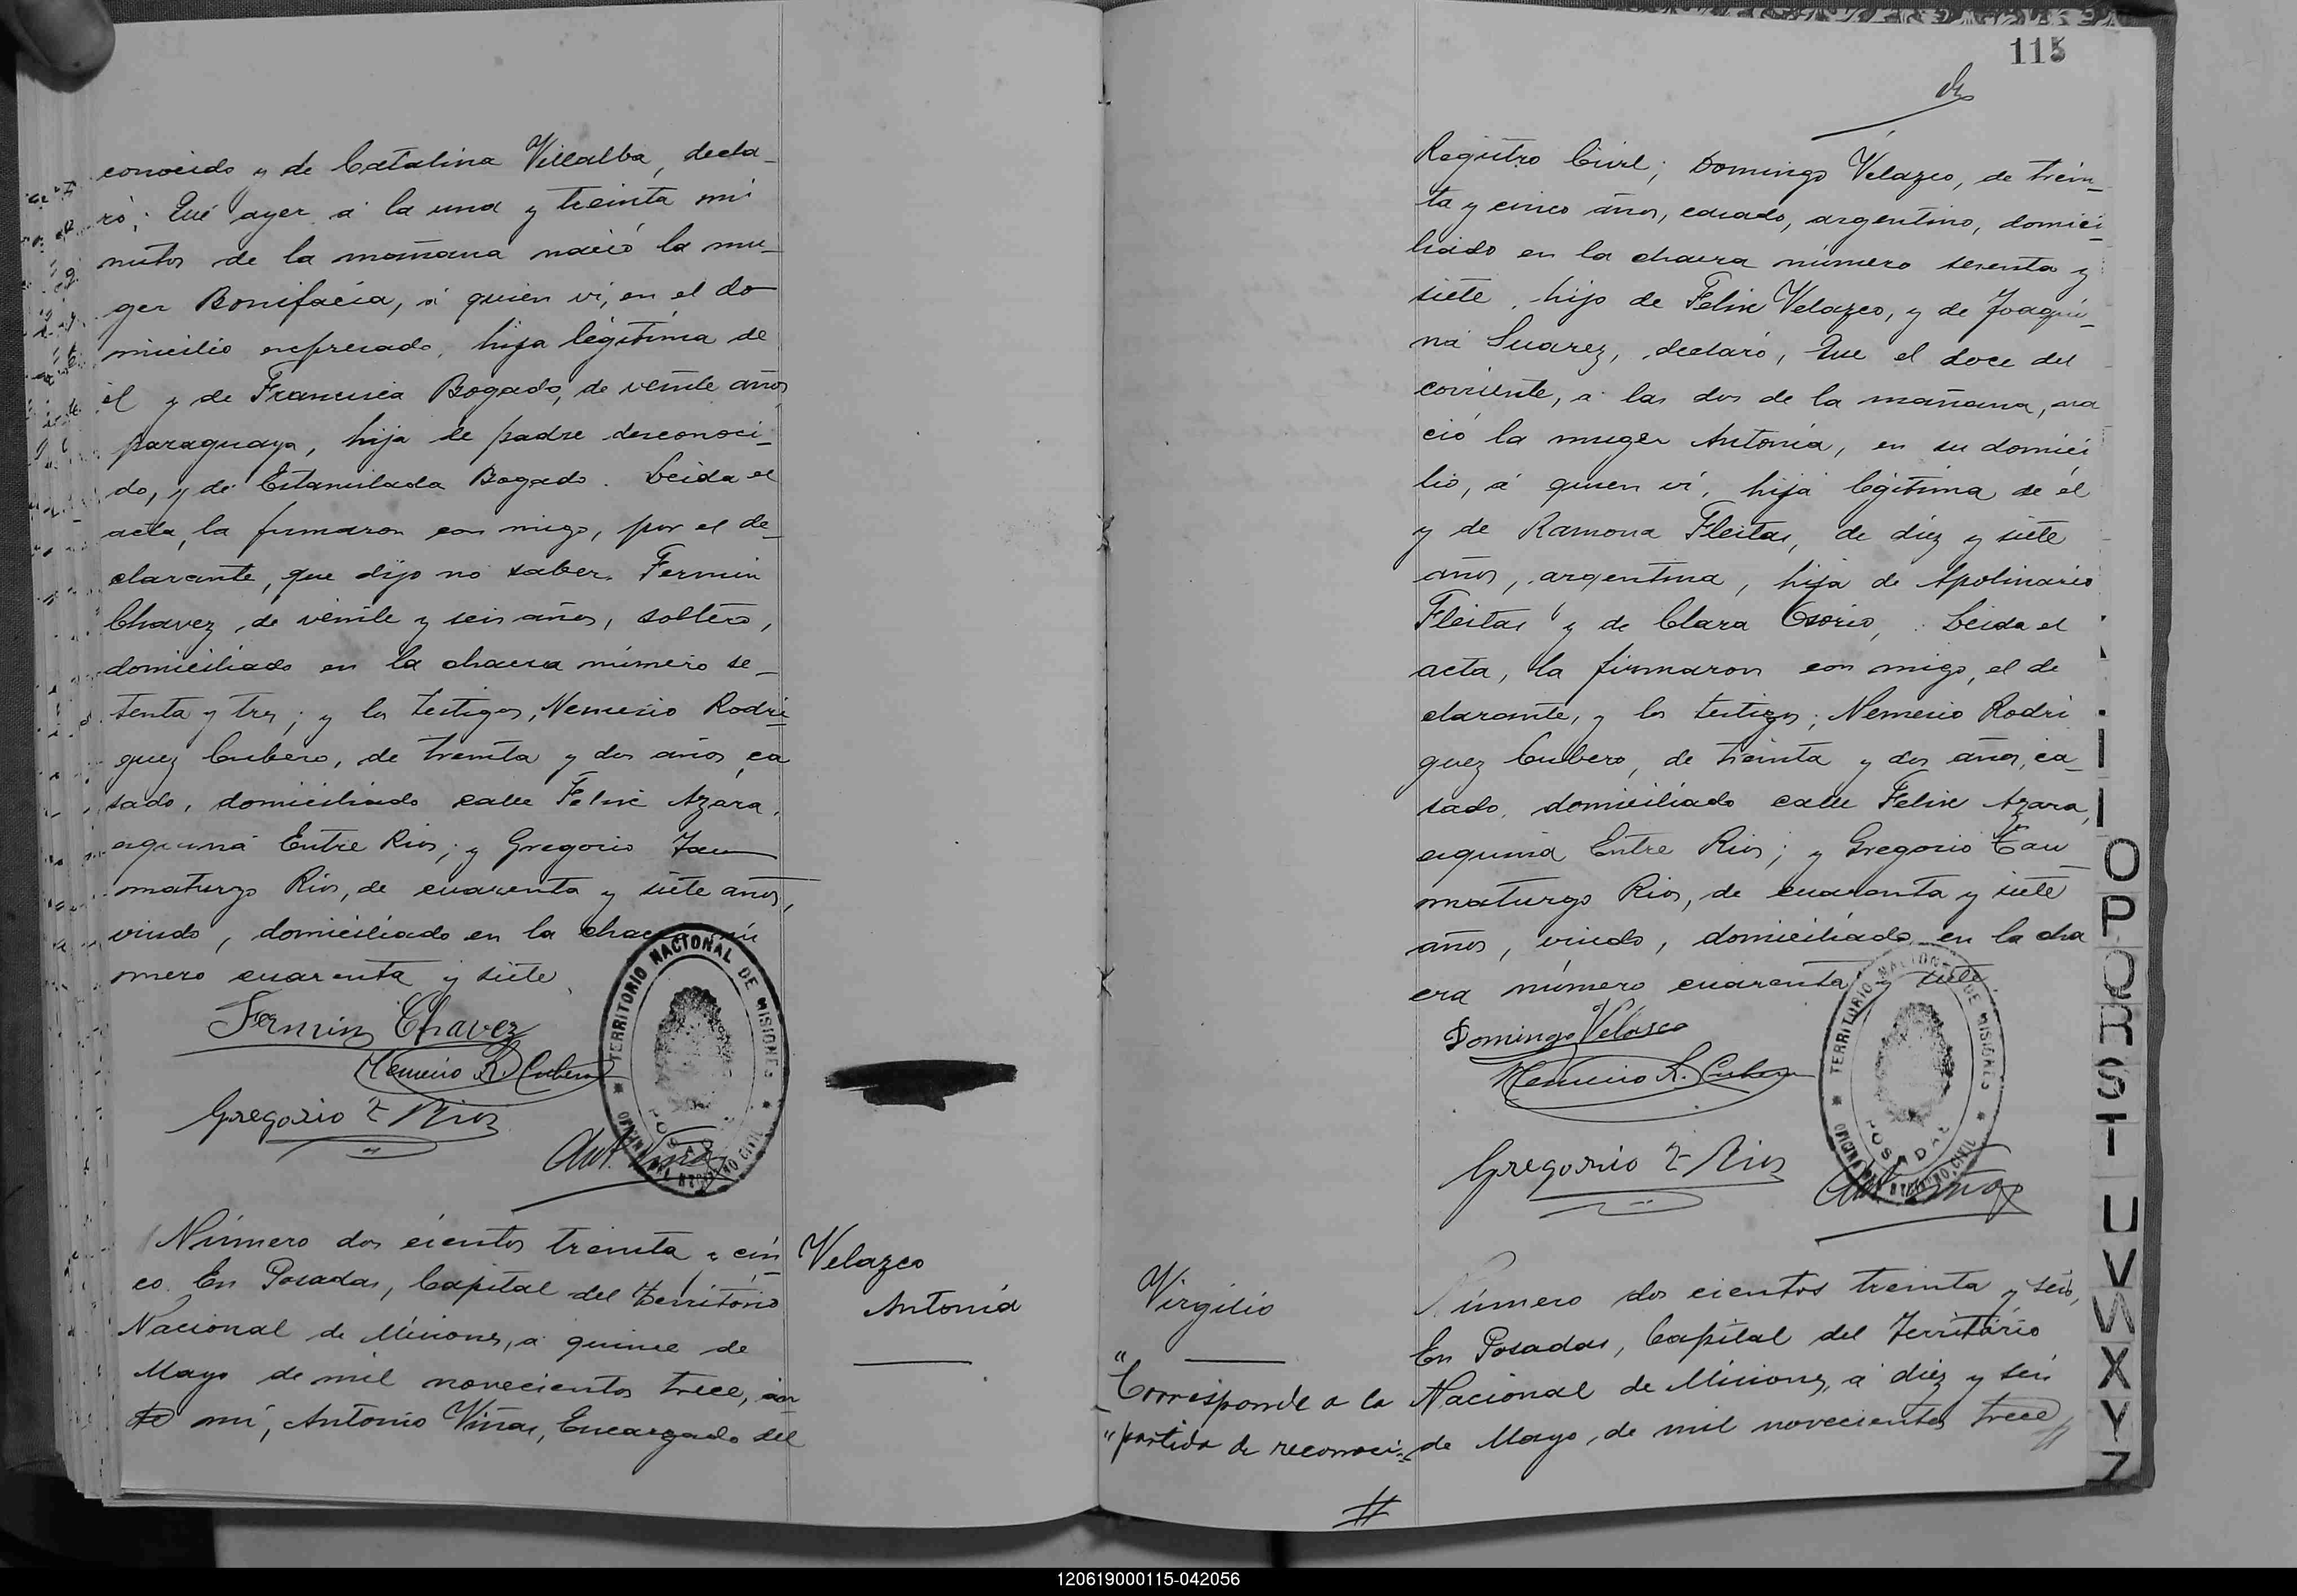 conocido y de Catalina Villalba, decla-
ró; Qué ayer á la una y treinta mi
nutos de la mañana nació la mu-
ger Bonifacia, á quien ví, en el do
micilio expresado, hija légitima de
él y de Francisca Bogado, de veinte años
paraguaya, hija de padre desconoci-
do, y de Estanislada Bogado. Leida el
acta, la firmaron con migo, por el de-
clarante, que dijo no saber. Fermin
Chavez, de veinte y seis años, soltero,
domiciliado en la chacra número se-
tenta y tres; y los testigos, Nemesio Rodri-
guez Cubero, de treinta y dos años, ca
sado, domiciliado calle Felix Azara,
esquina Entre Rios; y Gregorio Tau
maturgo Rios, de cuarenta y siete años,
viudo, domiciliado en la chacra nú
mero cuarenta y siete
Fermin Chavez
Nemesio R. Cubero
Gregorio T Rios
Ant. Viñas
TERRITORIO NACIONAL DE MISIONES
POSADAS
Número dos cientos treinta y cin-
co. En Posadas, Capital del Territorio
Nacional de Misiones, a quince de
Mayo de mil novecientos trece, an
te mí, Antonio Viñas, Encargado del
Velazco
Antonia
115
Registro Civil; Domingo Velazco, de trein-
ta y cinco años, casado, argentino, domici-
liado en la chacra número sesenta y
siete, hijo de Felix Velazco, y de Joaqui-
na Suarez, declaró, Que el doce del
corriente, a las dos de la mañana, na
ció la muger Antonia, en su domici
lio, á quien ví, hija légitima de él
y de Ramona Fleitas, de diez y siete
años, argentina, hija de Apolinario
Fleitas y de Clara Osorio, Leida el
acta, la firmaron con migo, el de
clarante, y los testigos; Nemesio Rodri
guez Cubero, de treinta y dos años, ca-
sado, domiciliado calle Felix Azara,
esquina Entre Rios; y Gregorio Tau-
maturgo Rios, de cuarenta y siete
años, viudo, domiciliado en la cha
cra número cuarenta y siete
Domingo Velasco
Nemesio R. Cubero
Gregorio T Rios
Ant Viñas
TERRITORIO NACIONAL DE MISIONES
POSADAS
Virgilio
"Corresponde a la
"partida de reconoci-
#
Número dos cientos treinta y seis,
En Posadas, Capital del Territorio
Nacional de Misiones, á diez y seis
de Mayo, de mil novecientos trece
O
P
Q
R
S
T
U
V
W
X
Y
Z
120619000115-042056